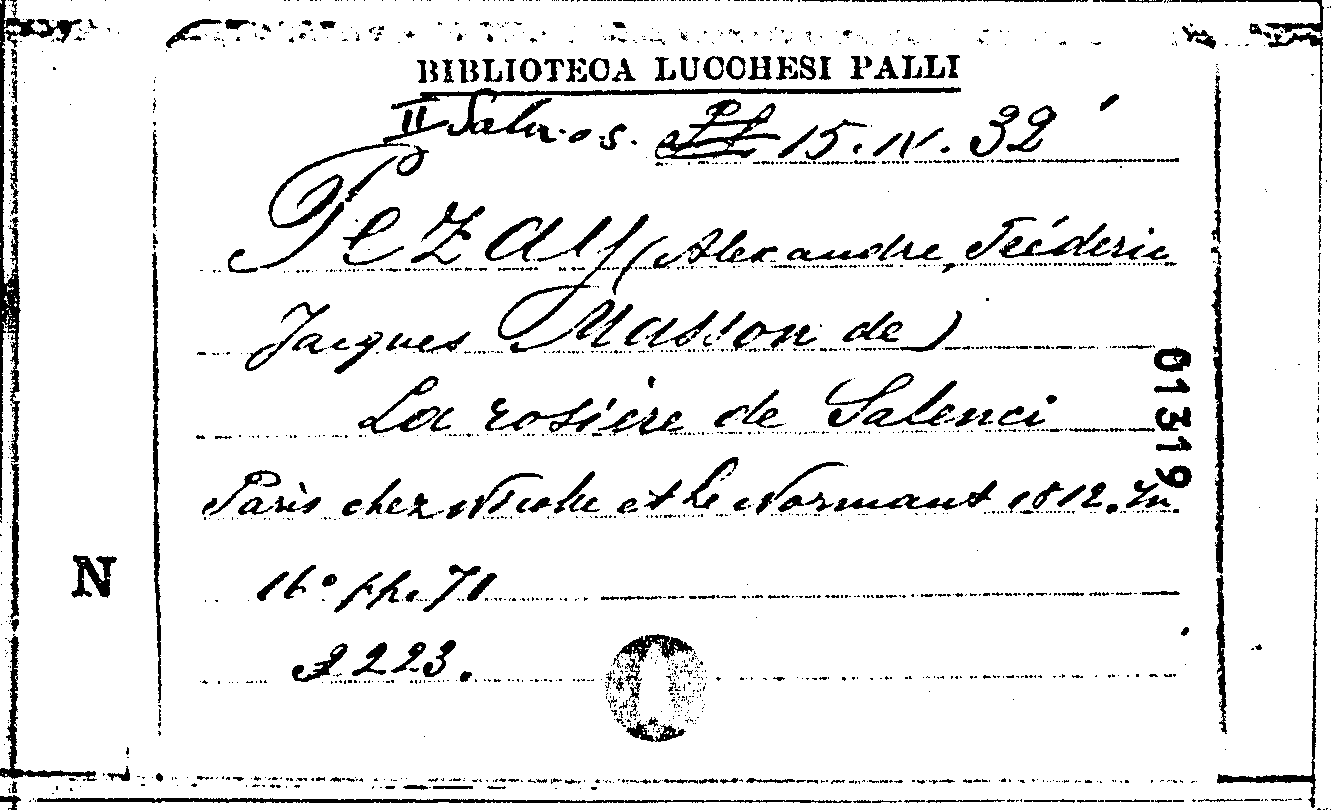 BIBLIOTECA LUCCHESI PALLI
II Sala. 15. IV. 32
Pezay (Alexandre, Fréderic
Jacques Masson de)
La rosière de Salenci
Paris chez Nicolle et Le Normant 1812. In
16° pp. 71
2223.
01319
N